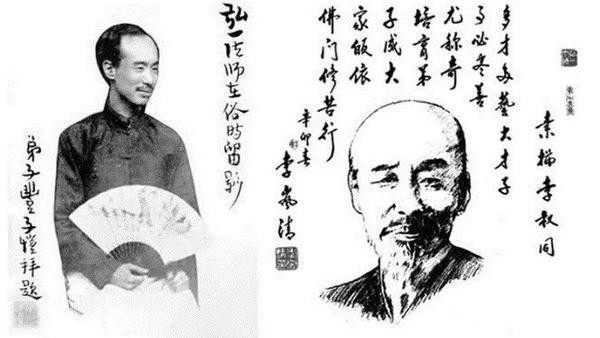 弘一法师在俗时留影
弟子豐子愷拜题
素描李叔同
多才多艺大才子
事必尽善
尤称奇
培育弟
子成大
家皈依
佛门修苦行
辛卯春
李岚清